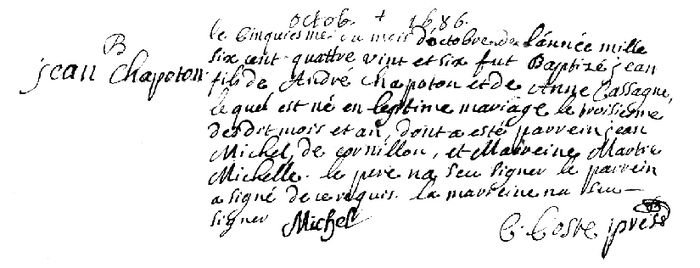 octob. + 1686.
le cinquiesme du mois d'octobre de l'année mille
six cent quattre vint et six fut Baptizé jean
B
jean Chapoton.
fils de André Chapoton et de Anne Cassagne,
lequel est né en legitime mariage le troisiesme
desdit mois et an, dont a esté parrein jean
Michel, de cornillon, et Marreine Martre
Michelle. le pere na sçeu signer le parrein
a signé de ce requis. la marreine na sçeu
signer Michel
C. Coste